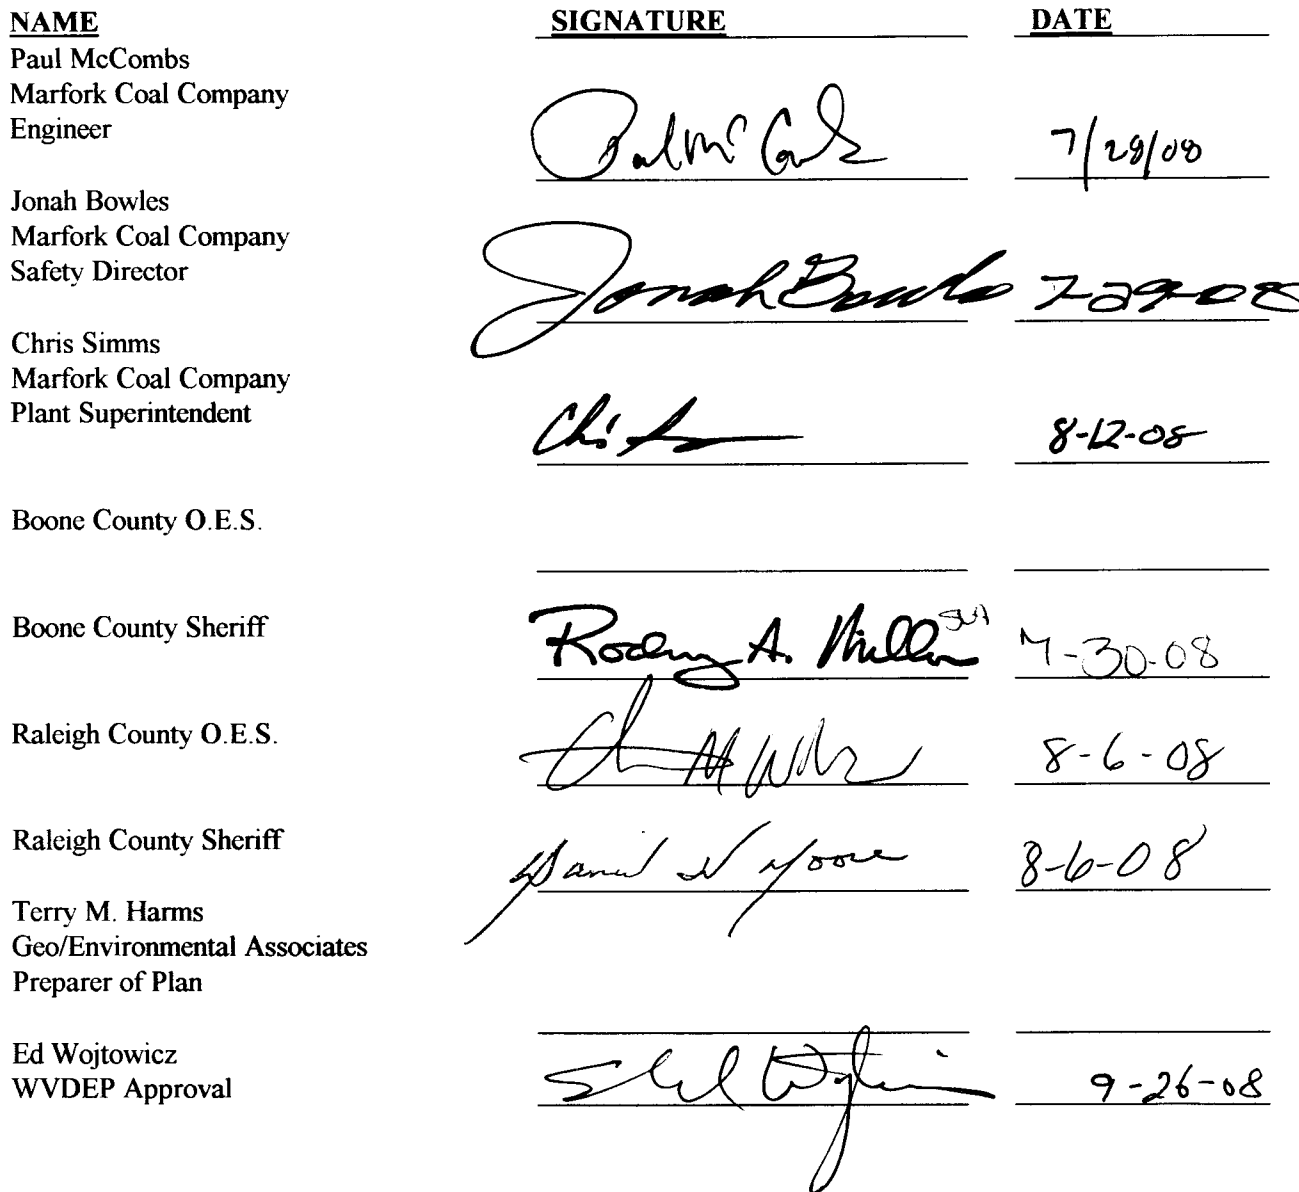 NAME SIGNATURE DATE
Paul McCombs
Marfork Coal Company
Engineer
Paul McCombs 7/28/08
Jonah Bowles
Marfork Coal Company
Safety Director
Jonah Bowles 7-29-08
Chris Simms
Marfork Coal Company
Plant Superintendent
8-12-08
Boone County O.E.S.
Boone County Sheriff Rodney A. Miller 7-30-08
Raleigh County O.E.S. 8-6-08
Raleigh County Sheriff Moore 8-6-08
Terry M. Harms
Geo/Environmental Associates
Preparer of Plan
Ed Wojtowicz
WVDEP Approval 9-26-08